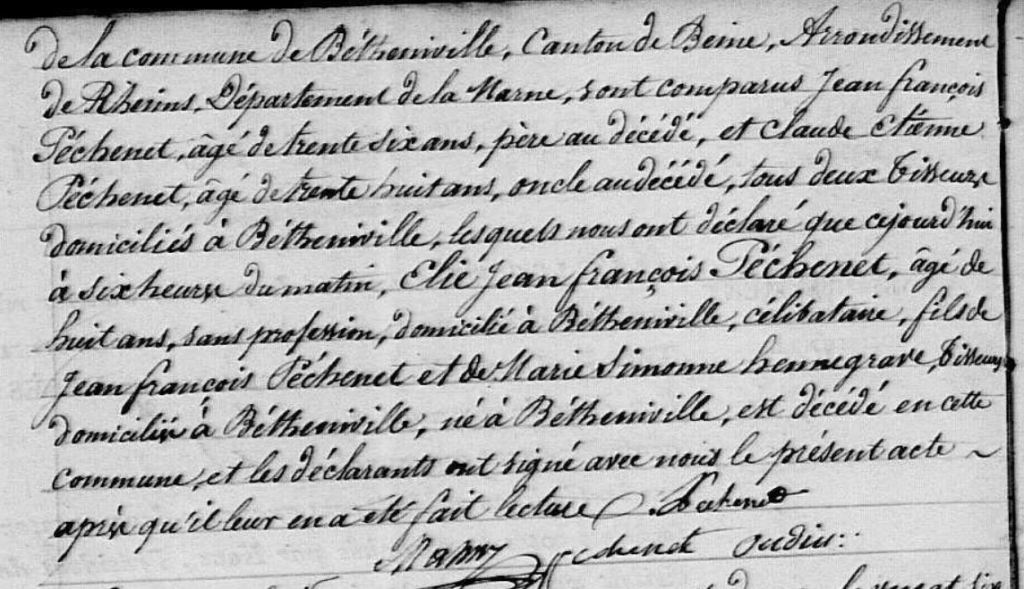 de la commune de Bétheniville, Canton de Beine, Arrondissement
de Rheims, Département de la Marne, sont comparus Jean françois
Péchenet, âgé de trente six ans, père au décédé, et Claude Etienne
Péchenet, âgé de trente huit ans, oncle au décédé, tous deux Tisseurs
domiciliés à Bétheniville, lesquels nous ont déclaré que cejourd'hui
à six heures du matin, Elie Jean françois Péchenet, âgé de
huit ans, sans profession, domicilié à Bétheniville, célibataire, fils de
Jean françois Péchenet et de Marie Simonne hennegrave, Tisseurs
domiciliés à Bétheniville, né à Bétheniville, est décédé en cette
commune, et les déclarants ont signé avec nous le présent acte ~
après qu'il leur en a été fait lecture Pechenet